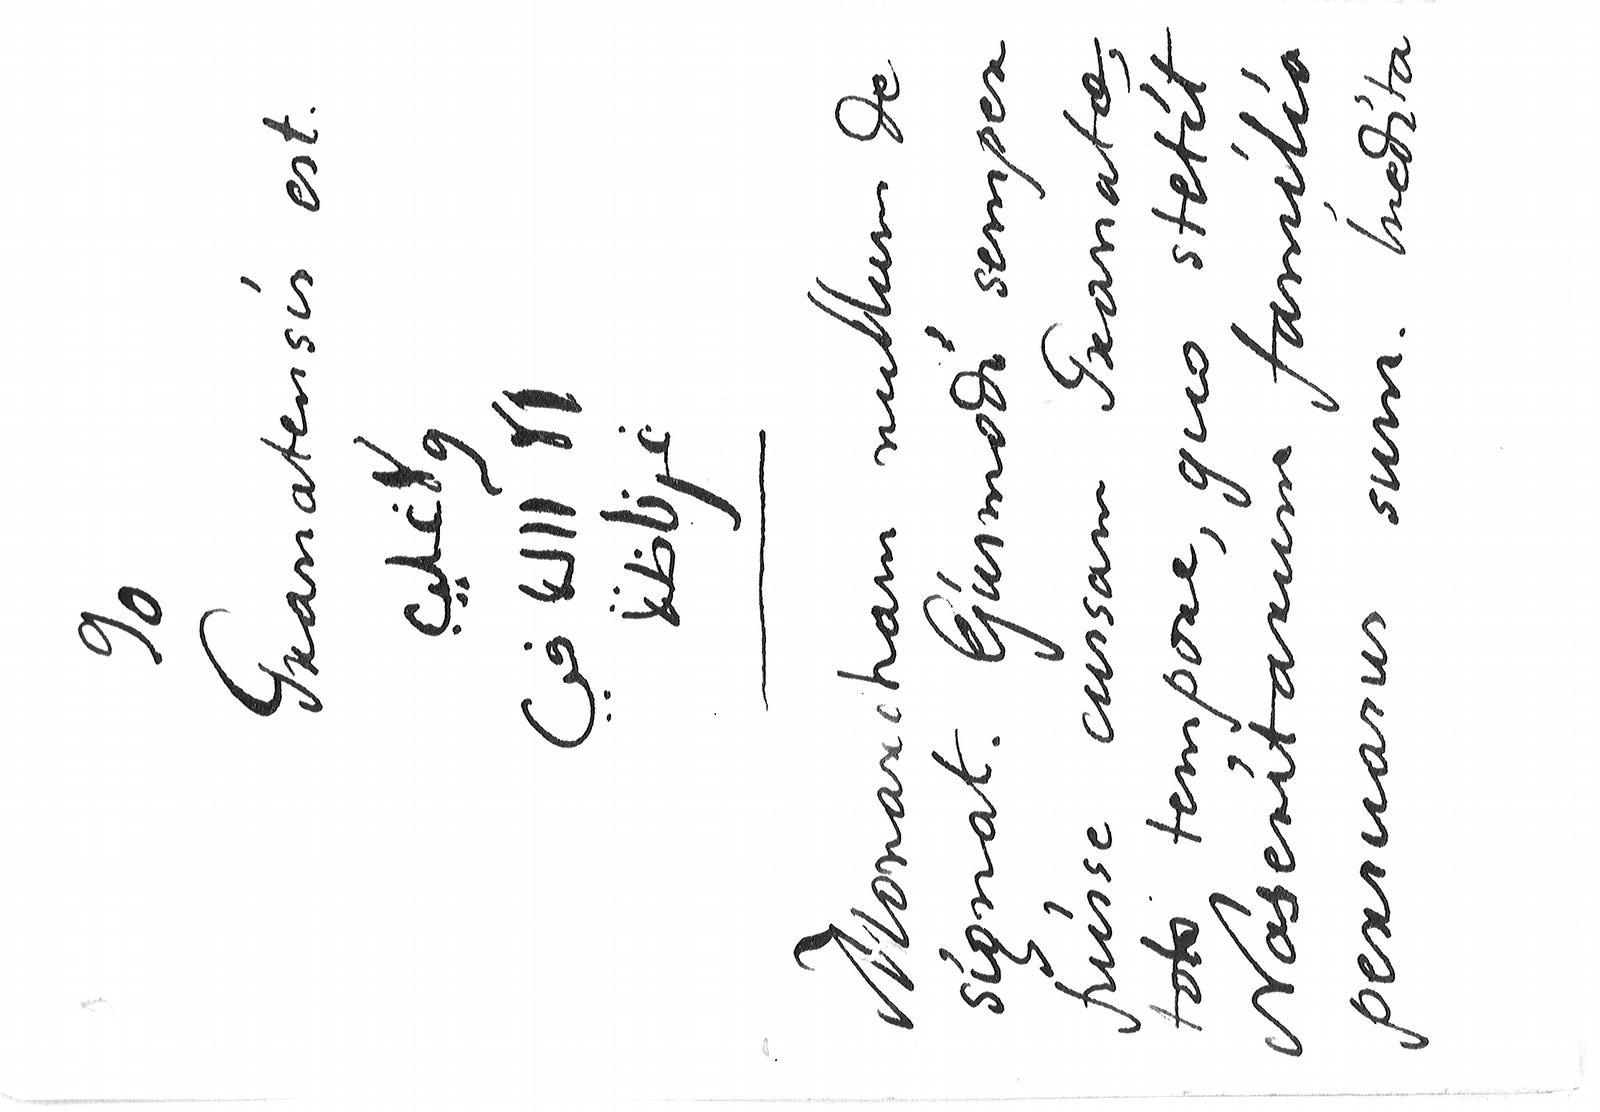 9o
Granatensis est.
و لا غلب
الا الله في
غرناطة
Monarcham nullum de
signat. Ejusmodi semper
fuisse cussam Granatæ,
toto tempore, quo stetit
Naseritarum familia
persuasus sum. Inedita